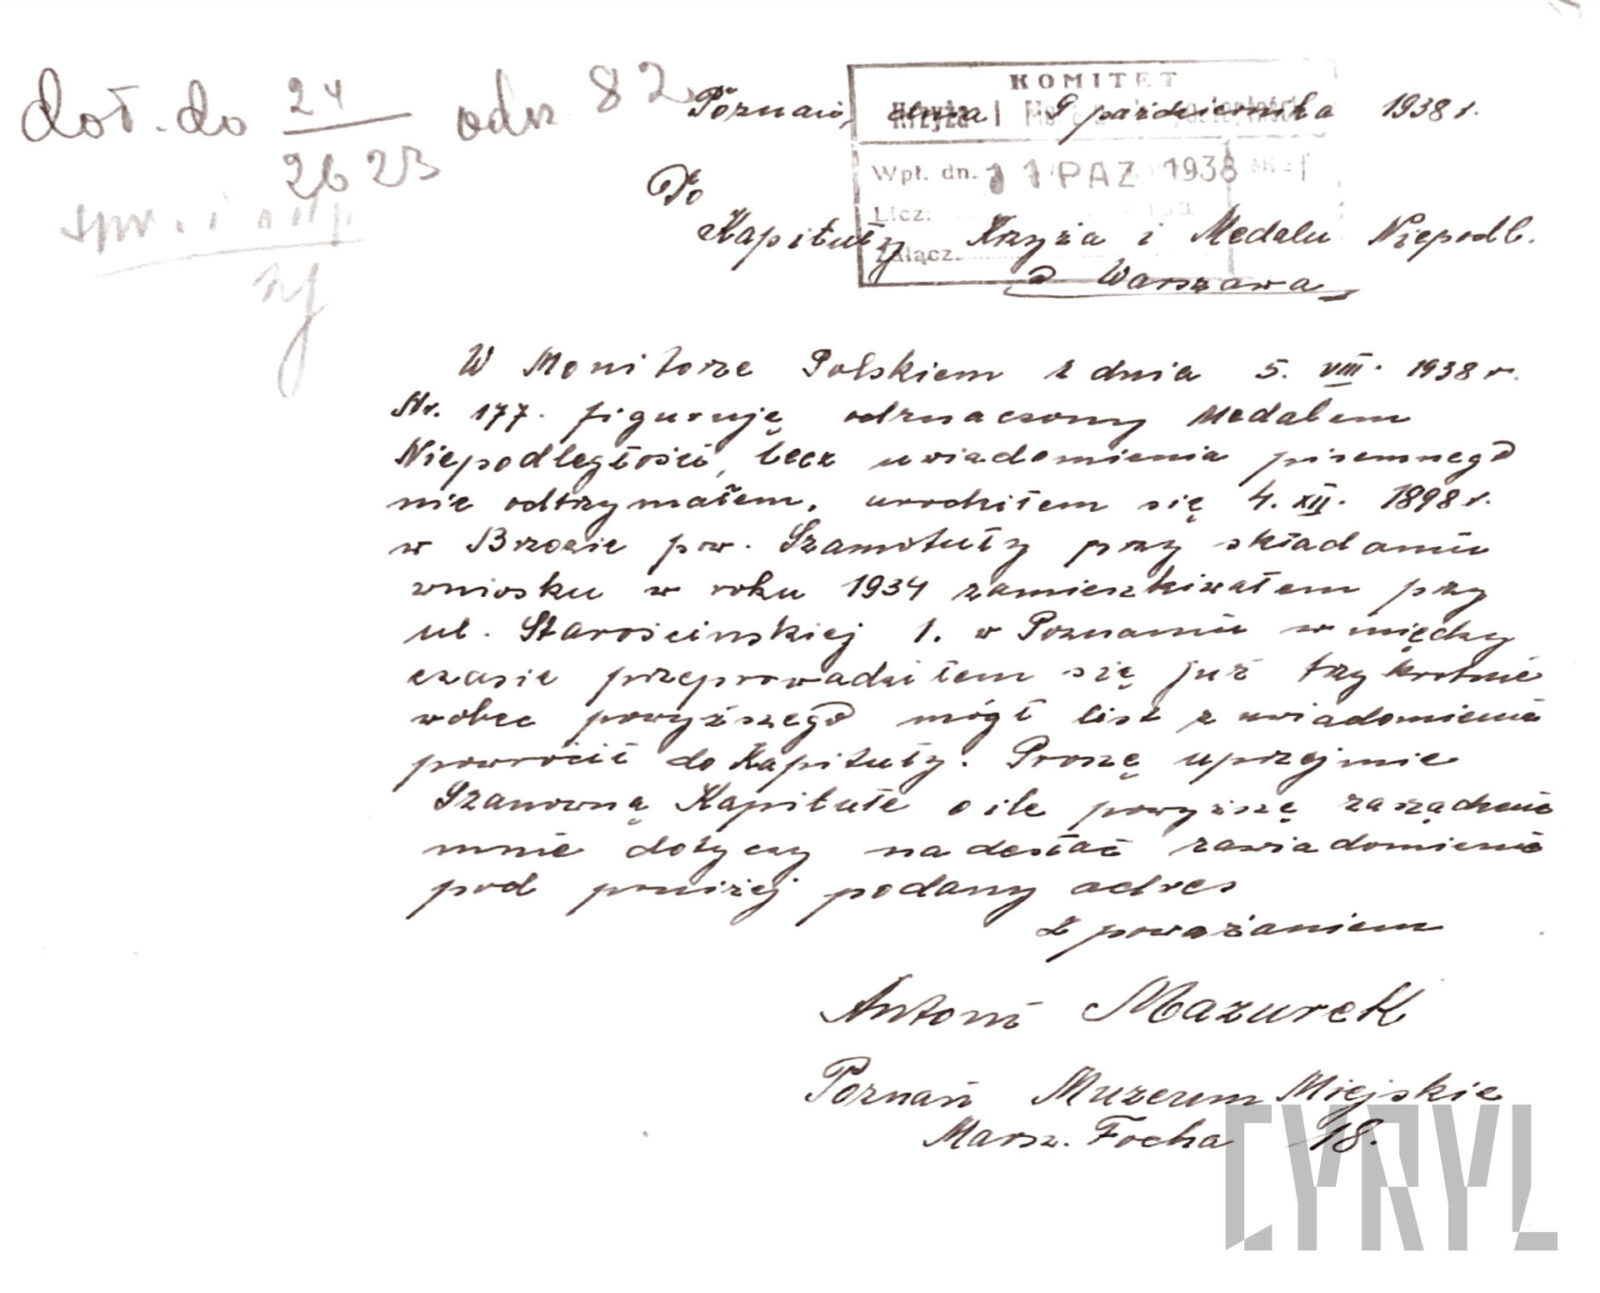 doł. do 24/2623 odzn 82
Poznań, dnia 9 października 1938 r.
KOMITET
Krzyża i
Wpł. dn. 11 PAZ 1938
Licz:
Załącz.
Do
Kapituły Krzyża i Medalu Niepodl.
Warszawa
W Monitorze Polskiem z dnia 5. VIII. 1938 r.
Nr. 177. figuruję odznaczony Medalem
Niepodległości, lecz uwiadomienia pisemnego
nie odtrzymałem, urodziłem się 4. XII. 1898 r.
w Brzozie pow. Szamotuły przy składaniu
wniosku w roku 1934 zamieszkiwałem przy
ul. Starościnskiej 1. w Poznaniu w między
czasie przeprowadziłem się już trzykrotnie
wobec powyższego mógł list z uwiadomienie
powrócić do Kapituły. Proszę uprzejmie
Szanowną Kapitułe o ile powyższę zarządzenie
mnie dotyczy nadesłać zawiadomienie
pod poniżej podany adres
Z poważaniem
Antoni Mazurek
Poznań Muzeum Miejskie
Marsz. Focha 18.
CYRYL